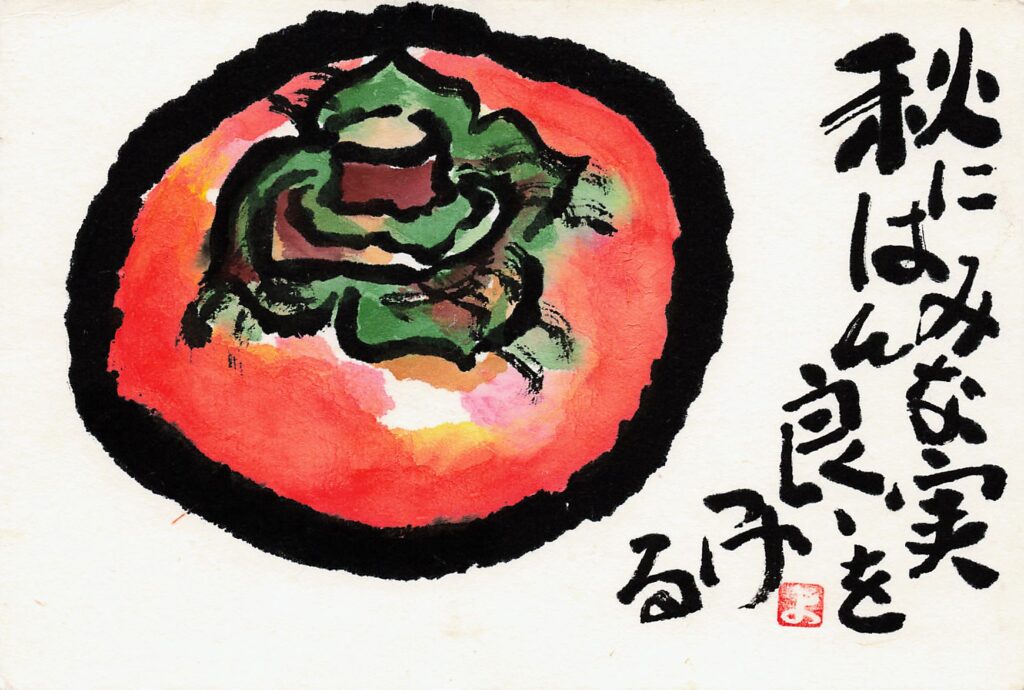 秋にはみんな良い実をつける
よ